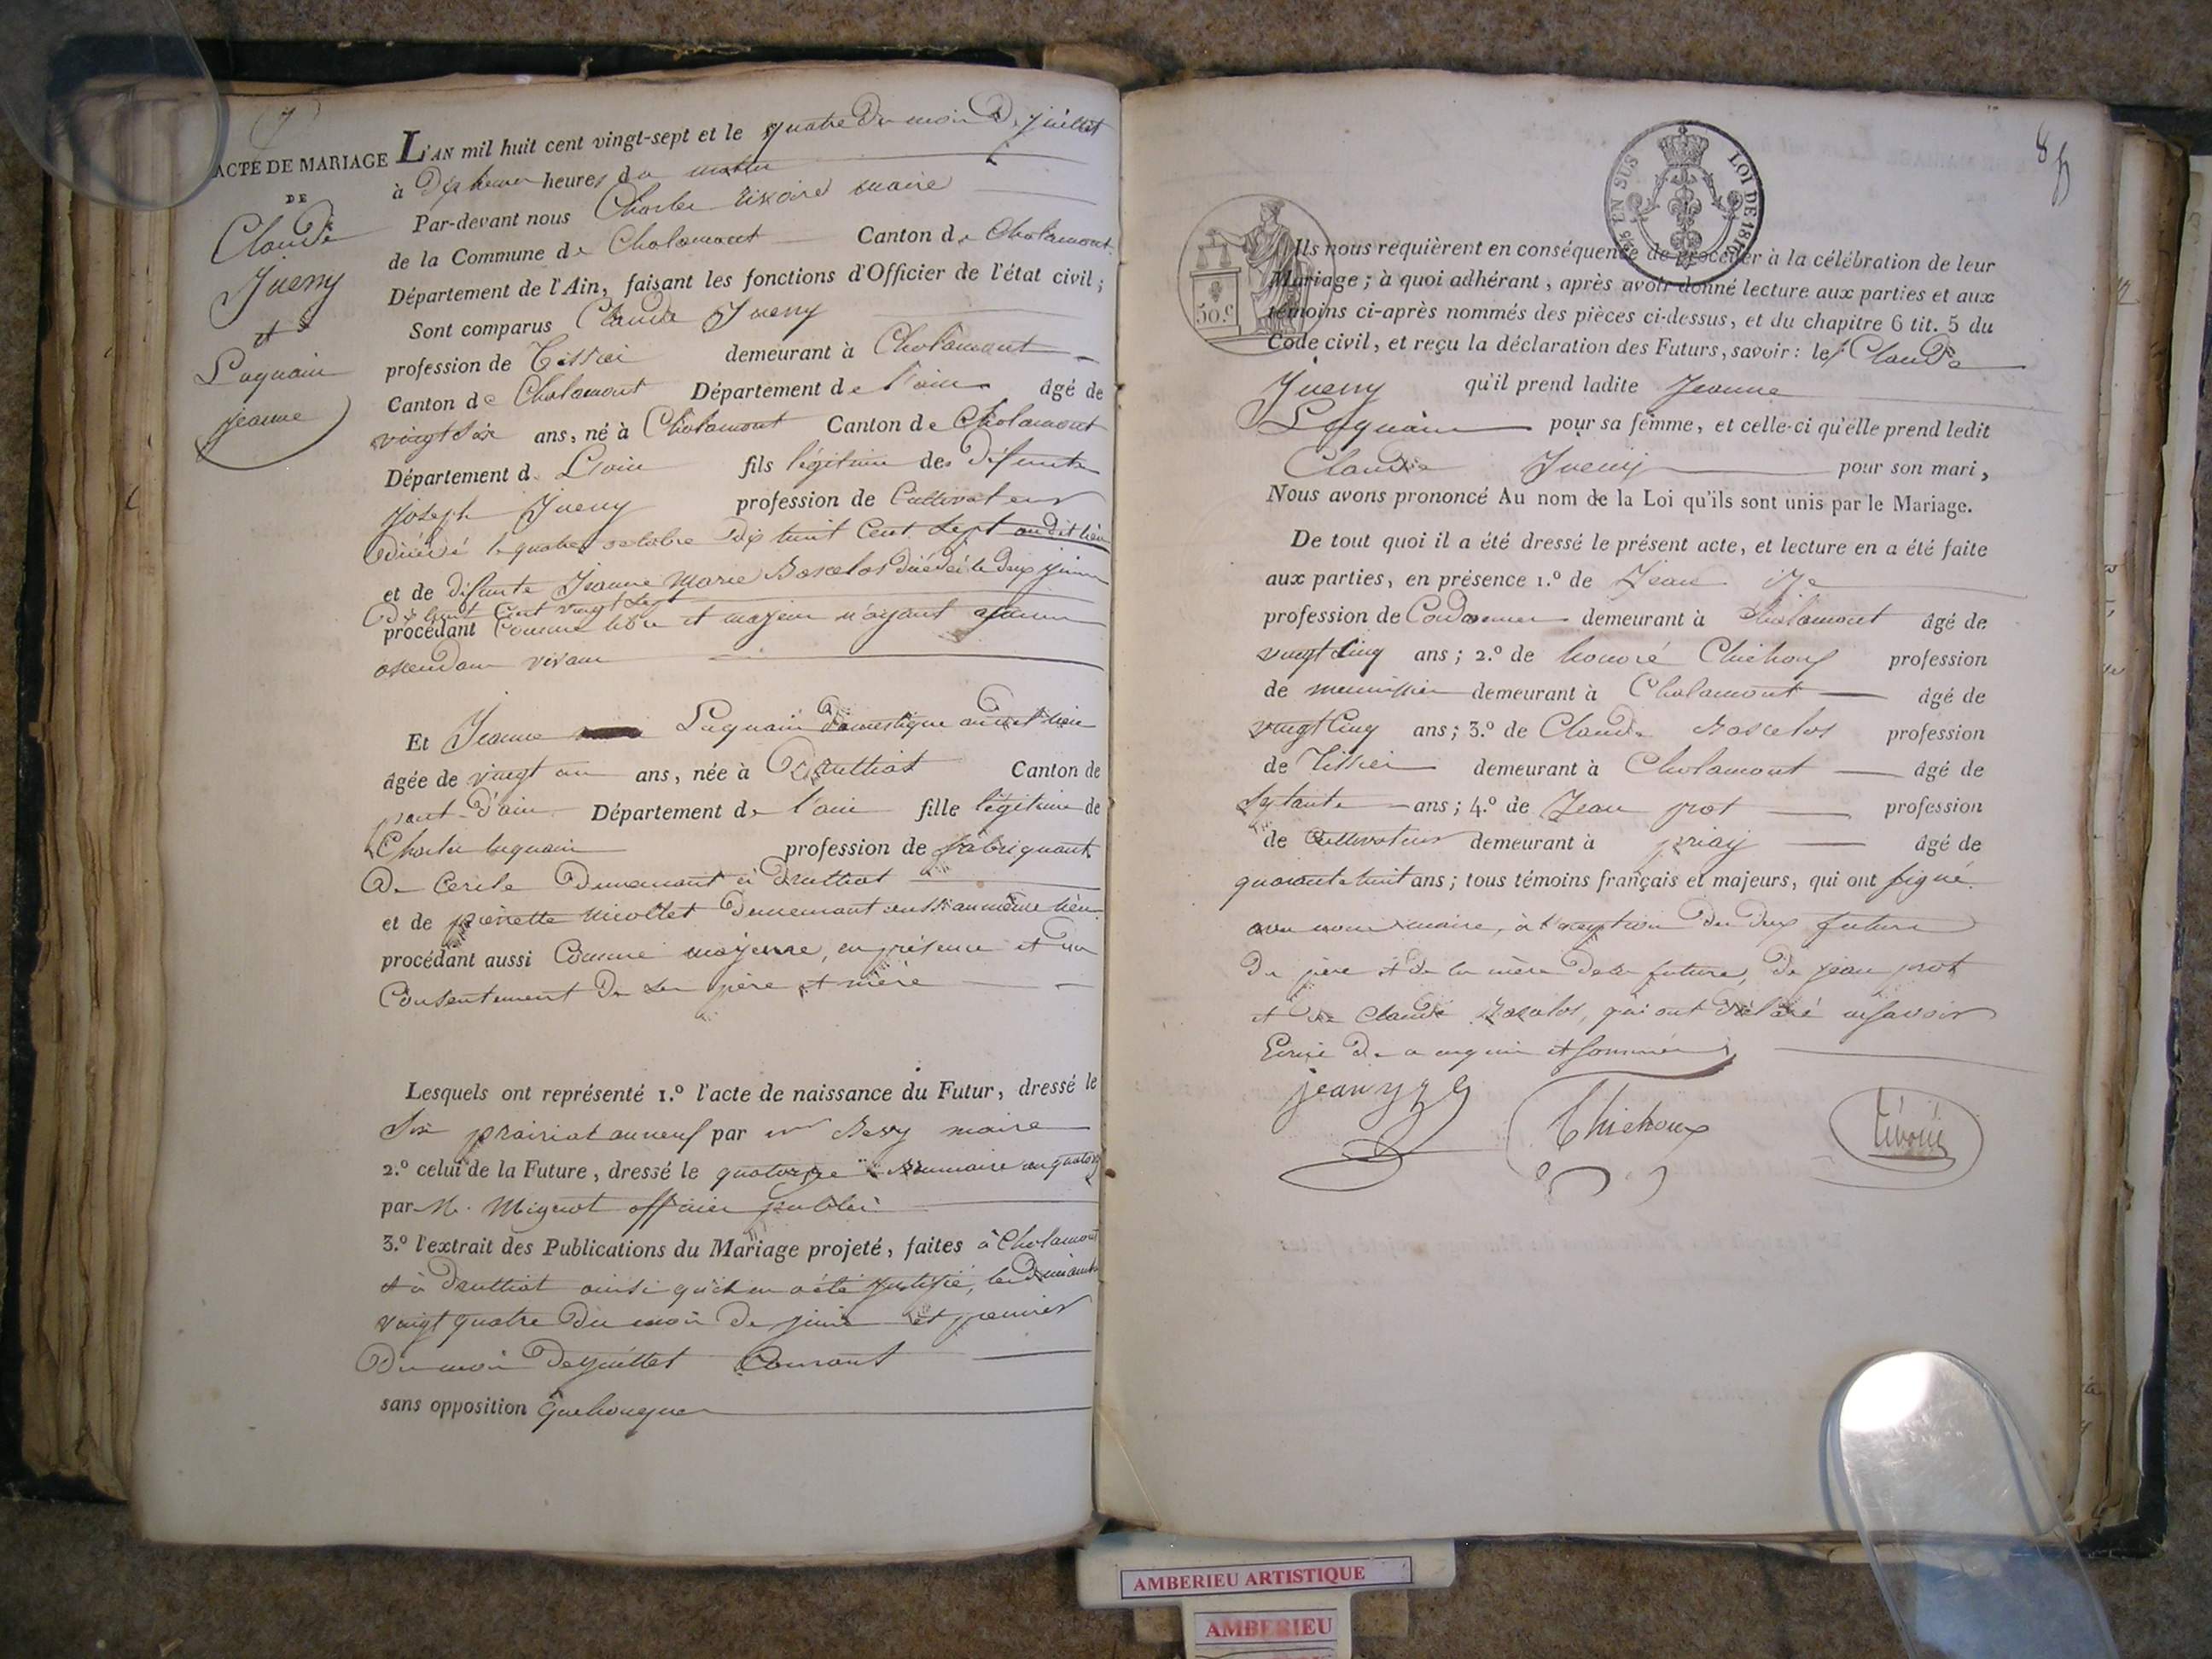 7
ACTE DE MARIAGE
DE
Claude
Jueny
et
Luquain
jeanne
L'AN mil huit cent vingt-sept et le quatre du mois de juillet
à dix heures heures du matin
Par-devant nous Charles maire
de la Commune de Chalamont Canton de Chalamont
Département de l'Ain, faisant les fonctions d'Officier de l'état civil ;
Sont comparus Claude Jueny
profession de Tissier demeurant à Chalamont
Canton de Chalamont Département de l'ain âgé de
vingt six ans, né à Chalamont Canton de Chalamont
Département de L'ain fils légitime des défunts
Joseph Jueny profession de Cultivateur
décédé le quatre octobre dix huit Cent sept audit lieu
et de défunte Jeanne Marie Boscelos décédée le deux juin
dix huit Cent vingt sept
procédant Comme libre et majeur n'ayant aucun
ascendans vivans
Et Jeanne Luquain domestique audit lieu
âgée de vingt un ans, née à Druilliat Canton de
pont-d'ain Département de l'ain fille légitime de
Charles luquain profession de fabriquant
De Cercle Demeurant à Druilliat
et de pierrette Nicollet Demeurant aussi au même lieu
procédant aussi Comme majeure, en présence et du
Consentement De ses père et mère
Lesquels ont représenté 1.° l'acte de naissance du Futur, dressé le
Six prairial an neuf par mr maire
2.° celui de la Future, dressé le quatorze Brumaire an quatorze
par M. Mignot officier public
3.° l'extrait des Publications du Mariage projeté, faites à Chalamont
et à Druilliat ainsi qu'il en a été justifié, les dimanches
vingt quatre du mois de juin et premier
Du mois De juillet Courant
sans opposition quelconque
8
25 EN SUS
LOI DE 1816
50.c
Ils nous requièrent en conséquence de procéder à la célébration de leur
Mariage ; à quoi adhérant, après avoir donné lecture aux parties et aux
témoins ci-après nommés des pièces ci-dessus, et du chapitre 6 tit. 5 du
Code civil, et reçu la déclaration des Futurs, savoir : le Claude
Jueny qu'il prend ladite Jeanne
Luquain pour sa femme, et celle-ci qu'elle prend ledit
Claude Jueny pour son mari,
Nous avons prononcé Au nom de la Loi qu'ils sont unis par le Mariage.
De tout quoi il a été dressé le présent acte, et lecture en a été faite
aux parties, en présence 1.° de Jean
profession de Cordonnier demeurant à Chalamont âgé de
vingt Cinq ans ; 2.° de honoré profession
de menuisier demeurant à Chalamont âgé de
vingt Cinq ans ; 3.° de Claude Boscelos profession
de Tissier demeurant à Chalamont âgé de
Septante ans ; 4.° de Jean prot profession
de Cultivateur demeurant à priay âgé de
quarante huit ans ; tous témoins français et majeurs, qui ont signé
avec nous maire, à l'exception des deux futurs
Du père et de la mère de la future, De jean prot
et de Claude Boscelos, qui ont déclaré ne savoir
Ecrire De ce enquis et sommés
jean yze
Chichoux